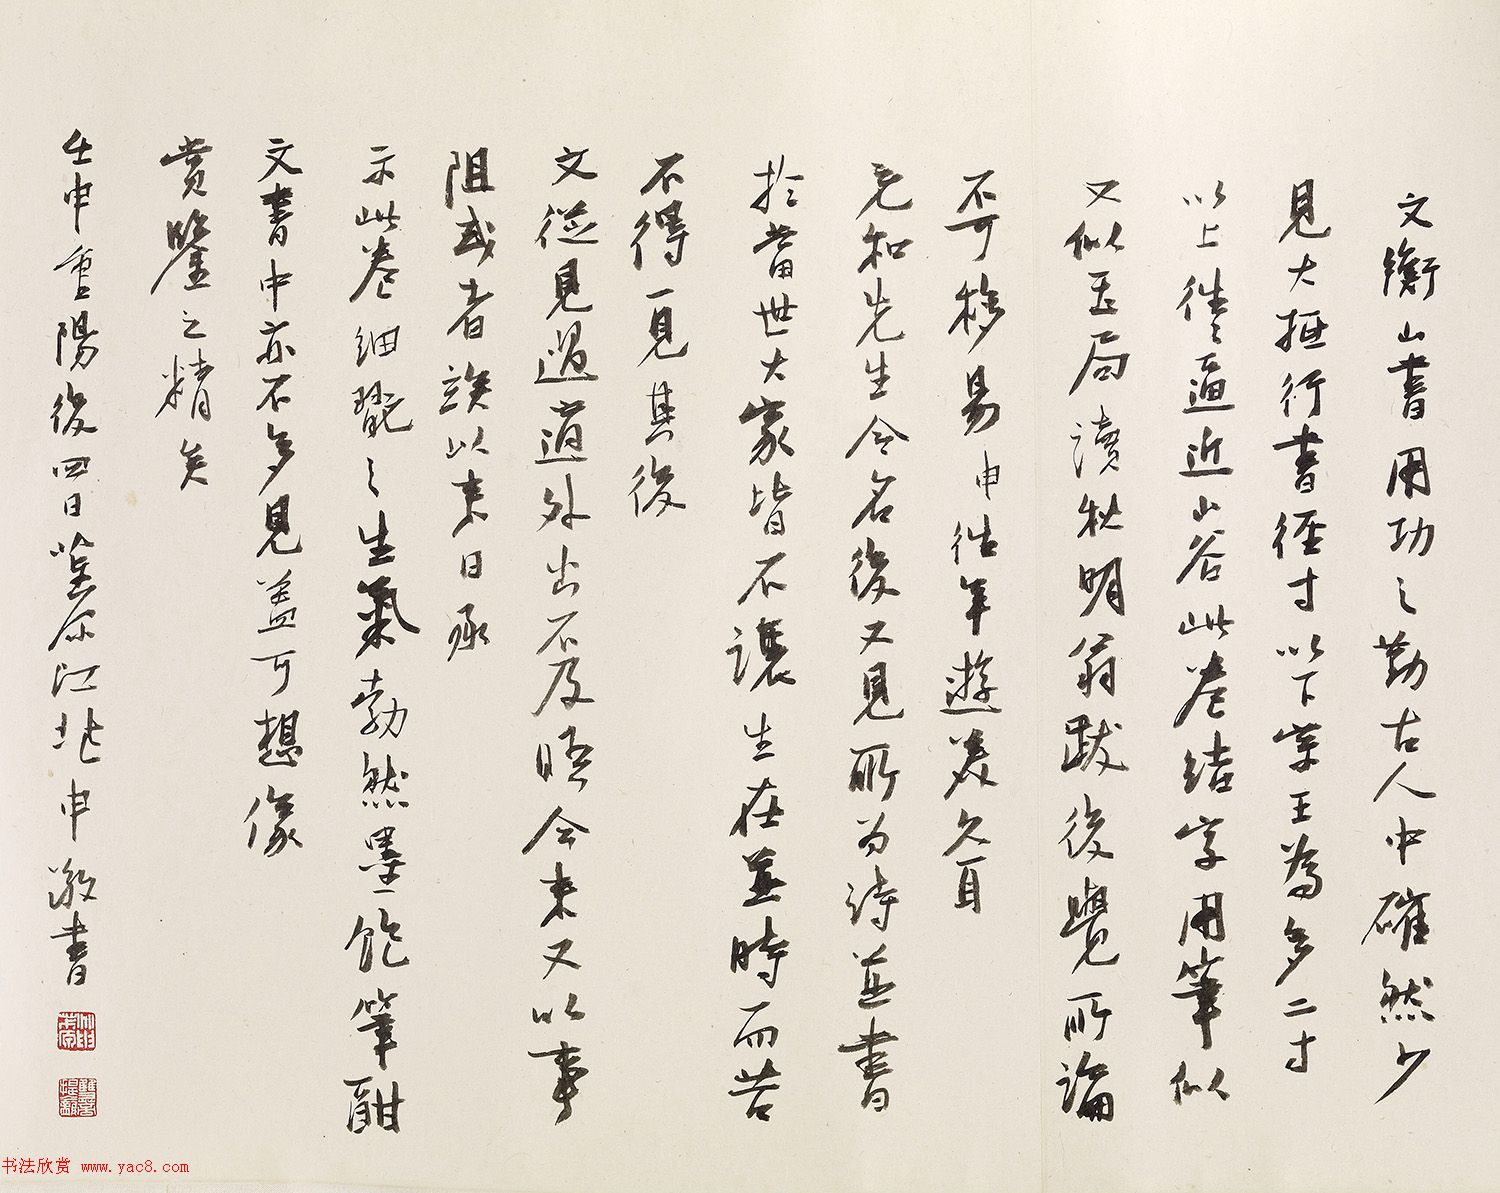 文衡山書用功之勤古人中確然少
見大抵行書徑寸以下學王為多二寸
以上往々逼近山谷此卷結字用筆似
又似玉局讀秋明翁跋後覺所論
不可移易申往年遊美久耳
元和先生令名後又見所為詩並書
於當世大家皆不讓生在並時而苦
不得一見其後
文從見過適外出不及晤会未又以事
阻或者誒以来日承
示此卷細翫之生氣勃然墨飽筆酣
文書中亦不多見蓋可想像
賞鑒之精矣
壬申重陽後四日茮原江兆申敬書
书法欣赏 www.yac8.com